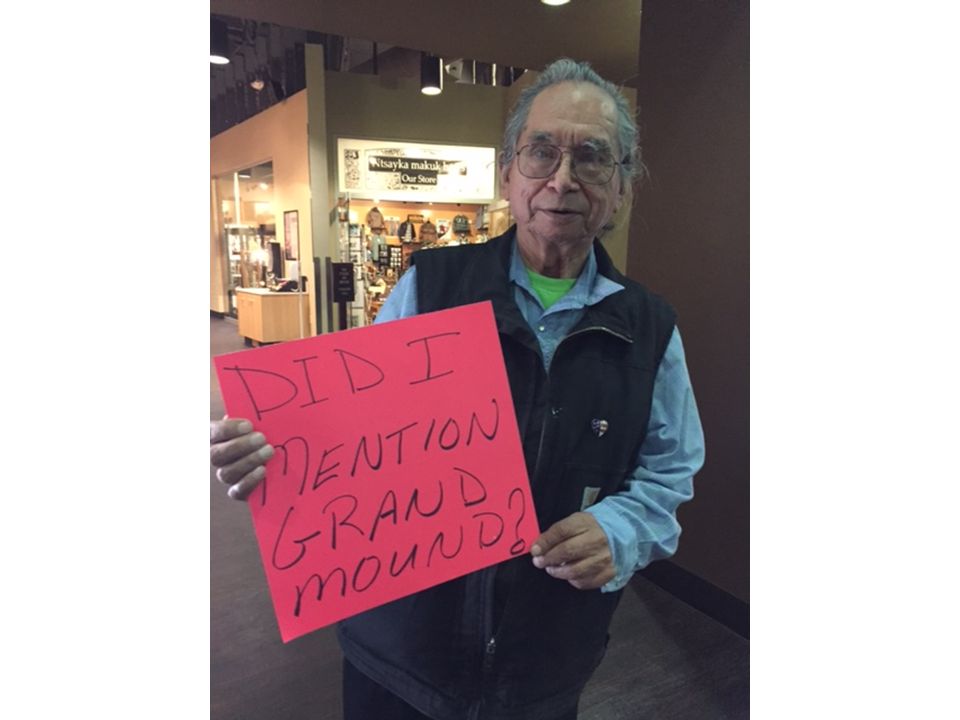 Ntsayka makuk
Our Store
DID I
MENTION
GRAND
MOUND?